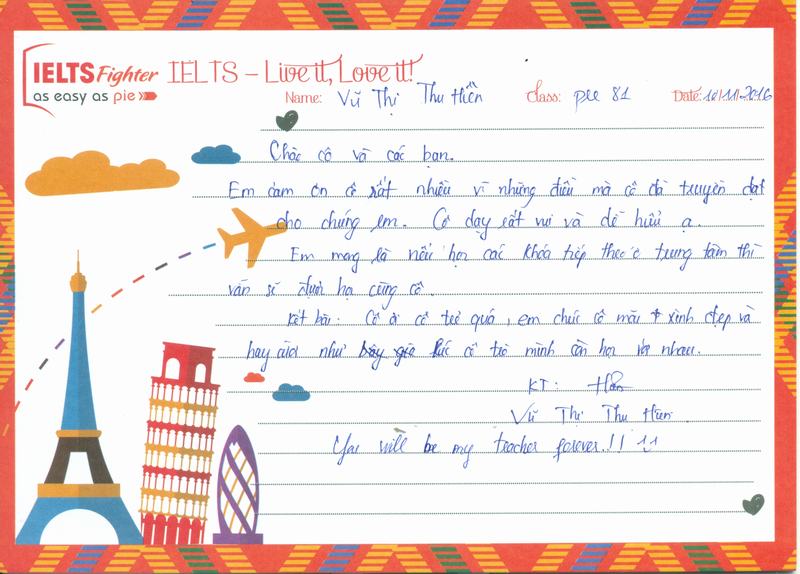 IELTS Fighter
as easy as pie
IELTS – Live it, Love it!
Name: Vũ Thị Thu Hiền Class: pre 81 Date: 10/11/2016
Chào cô và các bạn.
Em cảm ơn cô rất nhiều vì những điều mà cô đã truyền đạt
cho chúng em. Cô dạy rất vui và dễ hiểu ạ.
Em mong là nếu học các khóa tiếp theo ở trung tâm thì
vẫn sẽ được học cùng cô.
Kết bài: Cô ơi cô trẻ quá, em chúc cô mãi xinh đẹp và
hay cười như bây giờ lúc cô trò mình còn học với nhau.
KT: Hiền
Vũ Thị Thu Hiền
You will be my teacher forever.!!